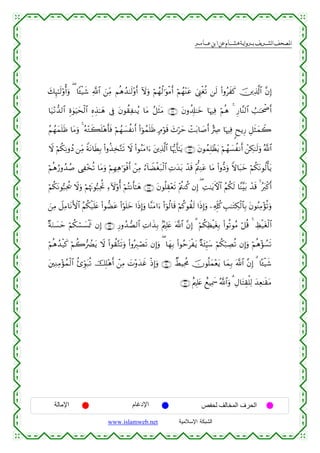 المصحف الشريف برواية هشام عن ابن عامر
إِنَّ ٱلَّذِينَ كَفَرُوا۟ لَن تُغْنِىَ عَنْهُمْ أَمْوَٰلُهُمْ وَلَآ أَوْلَٰدُهُم مِّنَ ٱللَّهِ شَيْـًٔا ۖ وَأُو۟لَٰٓئِكَ
أَصْحَٰبُ ٱلنَّارِ ۚ هُمْ فِيهَا خَٰلِدُونَ ﴿١١٦﴾ مَثَلُ مَا يُنفِقُونَ فِى هَٰذِهِ ٱلْحَيَوٰةِ ٱلدُّنْيَا
كَمَثَلِ رِيحٍ فِيهَا صِرٌّ أَصَابَتْ حَرْثَ قَوْمٍ ظَلَمُوٓا۟ أَنفُسَهُمْ فَأَهْلَكَتْهُ ۚ وَمَا ظَلَمَهُمُ
ٱللَّهُ وَلَٰكِنْ أَنفُسَهُمْ يَظْلِمُونَ ﴿١١٧﴾ يَٰٓأَيُّهَا ٱلَّذِينَ ءَامَنُوا۟ لَا تَتَّخِذُوا۟ بِطَانَةً مِّن دُونِكُمْ لَا
يَأْلُونَكُمْ خَبَالًا وَدُّوا۟ مَا عَنِتُّمْ قَدْ بَدَتِ ٱلْبَغْضَآءُ مِنْ أَفْوَٰهِهِمْ وَمَا تُخْفِى صُدُورُهُمْ
أَكْبَرُ ۚ قَدْ بَيَّنَّا لَكُمُ ٱلْءَايَٰتِ ۖ إِن كُنتُمْ تَعْقِلُونَ ﴿١١٨﴾ هَٰٓأَنتُمْ أُو۟لَآءِ تُحِبُّونَهُمْ وَلَا يُحِبُّونَكُمْ
وَتُؤْمِنُونَ بِٱلْكِتَٰبِ كُلِّهِۦ وَإِذَا لَقُوكُمْ قَالُوٓا۟ ءَامَنَّا وَإِذَا خَلَوْا۟ عَضُّوا۟ عَلَيْكُمُ ٱلْأَنَامِلَ مِنَ
ٱلْغَيْظِ ۚ قُلْ مُوتُوا۟ بِغَيْظِكُمْ ۗ إِنَّ ٱللَّهَ عَلِيمٌۢ بِذَاتِ ٱلصُّدُورِ ﴿١١٩﴾ إِن تَمْسَسْكُمْ حَسَنَةٌ
تَسُؤْهُمْ وَإِن تُصِبْكُمْ سَيِّئَةٌ يَفْرَحُوا۟ بِهَا ۖ وَإِن تَصْبِرُوا۟ وَتَتَّقُوا۟ لَا يَضُرُّكُمْ كَيْدُهُمْ
شَيْـًٔا ۗ إِنَّ ٱللَّهَ بِمَا يَعْمَلُونَ مُحِيطٌ ﴿١٢٠﴾ وَإِذْ غَدَوْتَ مِنْ أَهْلِكَ تُبَوِّئُ ٱلْمُؤْمِنِينَ
مَقَٰعِدَ لِلْقِتَالِ ۗ وَٱللَّهُ سَمِيعٌ عَلِيمٌ ﴿١٢١﴾
الحرف المخالف لحفص الإدغام الإمالة
الشبكة الإسلامية www.islamweb.net